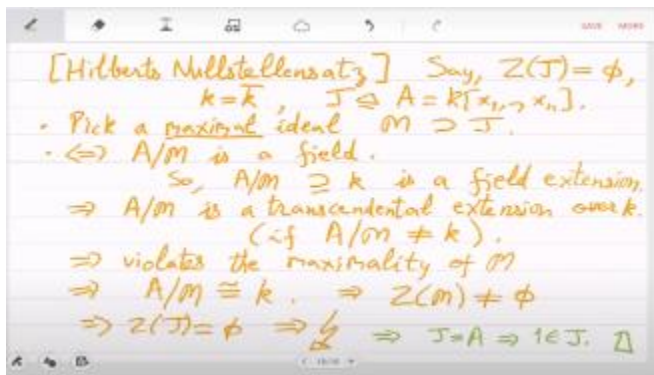 SAVE MORE
[Hilberts Nullstellensatz] Say, Z(J) = ϕ,
k = k̄, J ⊴ A = k[x₁,..,xₙ].
· Pick a maximal ideal m ⊃ J.
· <=> A/m is a field.
So, A/m ⊇ k is a field extension.
⇒ A/m is a transcendental extension over k.
(if A/m ≠ k).
⇒ violates the maximality of m
⇒ A/m ≅ k. ⇒ Z(m) ≠ ϕ
⇒ Z(J) = ϕ ⇒ ↯ ⇒ J=A ⇒ 1∈J. □